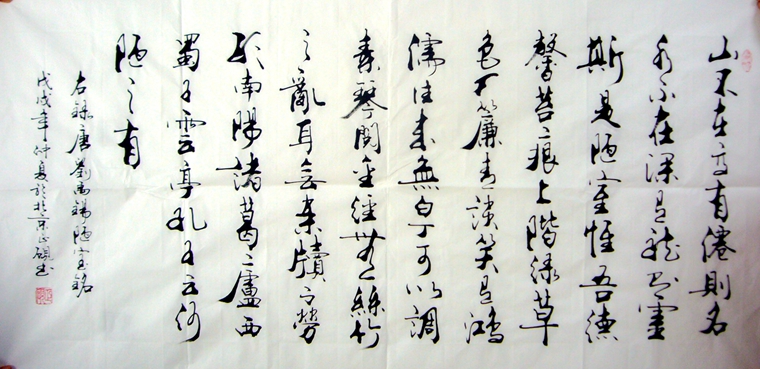 山不在高有僊則名
水不在深有龍則靈
斯是陋室惟吾德
馨苔痕上階緑草
色入簾青談笑有鴻
儒往來無白丁可以調
素琴閲金經無絲竹
之亂耳無案牘之勞
形南陽諸葛廬西
蜀子雲亭孔子云何
陋之有
右録唐劉禹錫陋室銘
戊戌年仲夏於北京